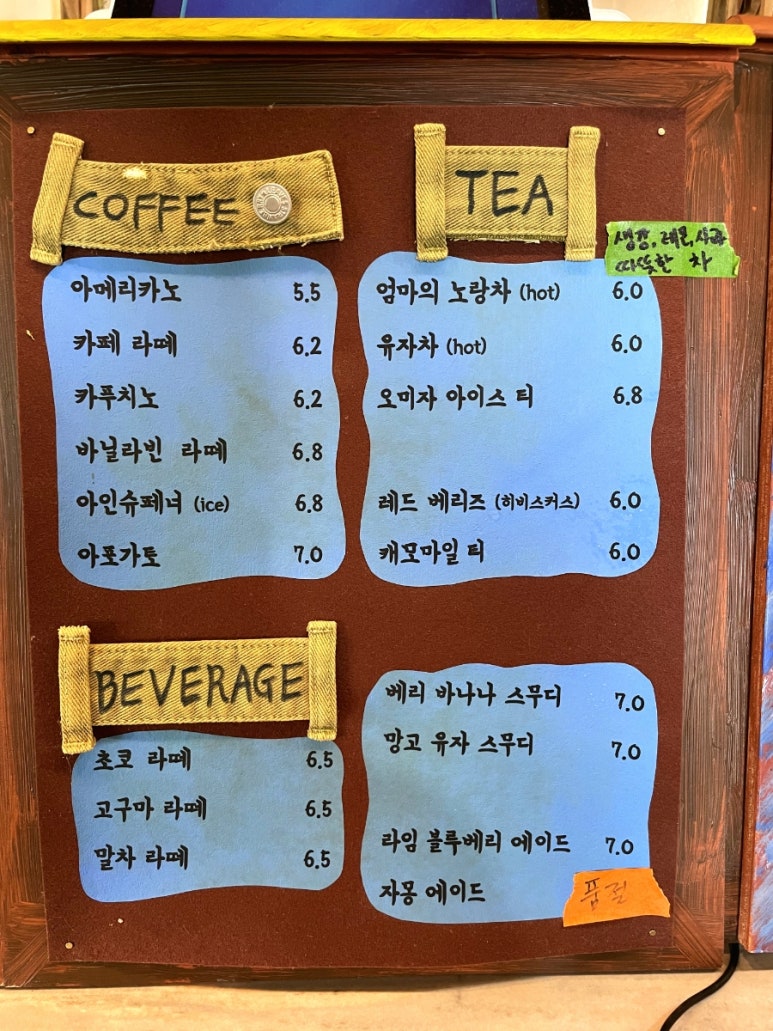 COFFEE
아메리카노 5.5
카페 라떼 6.2
카푸치노 6.2
바닐라빈 라떼 6.8
아인슈페너 (ice) 6.8
아포가토 7.0
TEA
생강, 레몬, 사과
따뜻한 차
엄마의 노랑차 (hot) 6.0
유자차 (hot) 6.0
오미자 아이스 티 6.8
레드 베리즈 (히비스커스) 6.0
캐모마일 티 6.0
BEVERAGE
초코 라떼 6.5
고구마 라떼 6.5
말차 라떼 6.5
베리 바나나 스무디 7.0
망고 유자 스무디 7.0
라임 블루베리 에이드 7.0
자몽 에이드 품절